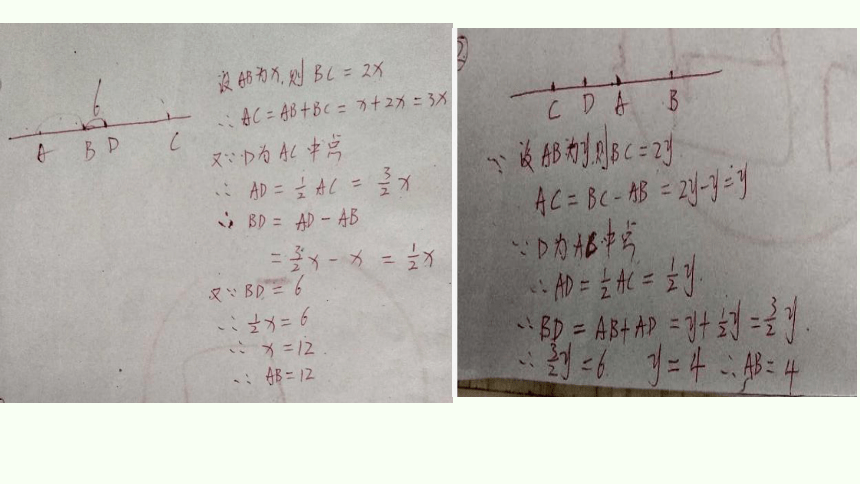 6
A B D C
设AB为x,则BC=2x
∴AC=AB+BC=x+2x=3x
又∵D为AC中点
∴AD=1/2AC=3/2x
∴BD=AD-AB
=3/2x-x=1/2x
又∵BD=6
∴1/2x=6
∴x=12
∴AB=12
②
C D A B
∵设AB为y,则BC=2y
AC=BC-AB=2y-y=y
∵D为AC中点
∴AD=1/2AC=1/2y.
∴BD=AB+AD=y+1/2y=3/2y.
∴3/2y=6 y=4 ∴AB=4